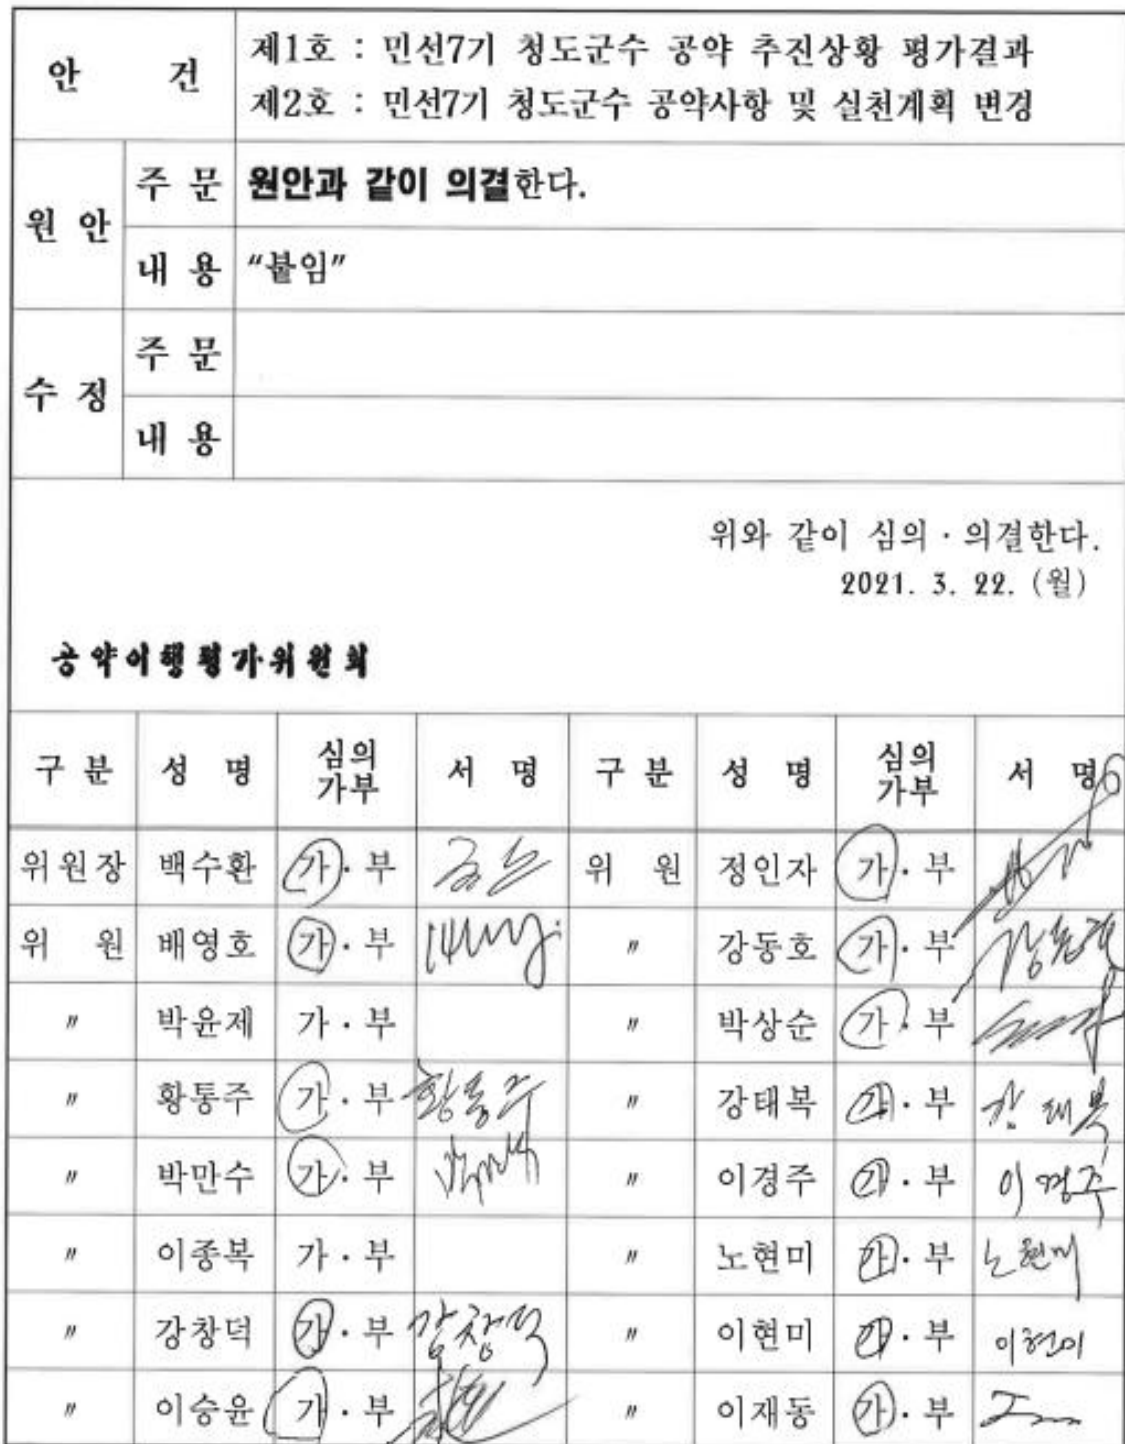 안 건
제1호 : 민선7기 청도군수 공약 추진상황 평가결과
제2호 : 민선7기 청도군수 공약사항 및 실천계획 변경
원 안
주 문
원안과 같이 의결한다.
내 용
"붙임"
수 정
주 문
내 용
위와 같이 심의 · 의결한다.
2021. 3. 22. (월)
공약이행평가위원회
구 분 성 명 심의 가부 서 명 구 분 성 명 심의 가부 서 명
위원장 백수환 가 · 부 위 원 정인자 가 · 부
위 원 배영호 가 · 부 〃 강동호 가 · 부 강동호
〃 박윤제 가 · 부 〃 박상순 가 · 부
〃 황통주 가 · 부 황통주 〃 강태복 가 · 부 강태복
〃 박만수 가 · 부 〃 이경주 가 · 부 이경주
〃 이종복 가 · 부 〃 노현미 가 · 부 노현미
〃 강창덕 가 · 부 강창덕 〃 이현미 가 · 부 이현미
〃 이승윤 가 · 부 〃 이재동 가 · 부